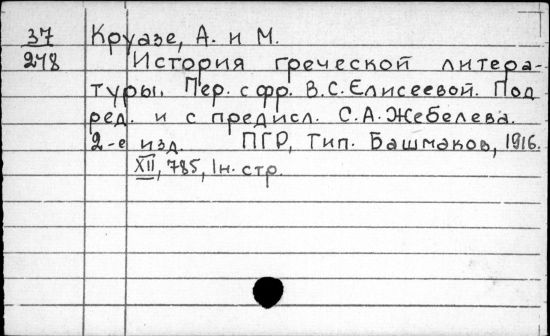 37 Круазе, А. и М.
278 История греческой литера-
туры. Пер. с фр. В.С. Елисеевой. Под
ред. и с предисл. С.А. Жебелева.
2-е изд. ПГР, Тип. Башмаков, 1916.
XII, 785, 1 н. стр.